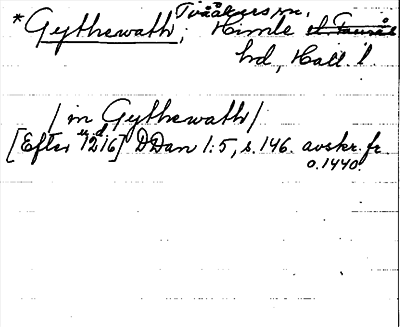 Tvååkers sn,
*Gythewath, Himle
hd, Hall. l.
/in Gythewath/
[Efter 1216] DDan 1:5, s. 146. avskr. fr.
o. 1440.